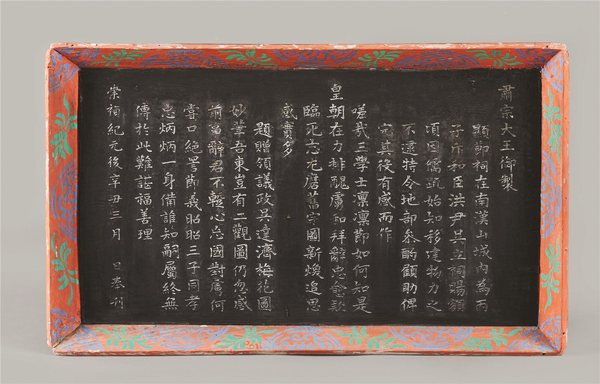 肅宗大王御製
顯節祠在南漢山城內為丙
子斥和臣洪尹吳立祠賜額
頃因儒疏始知移建物力之
不逮特令地部參酌顧助俾
完其役有感而作
嗟哉三學士凜凜節如何知是
皇朝在力排醜虜和拜辭忠愈
臨死志尤磨舊宇圖新煥追思
感實多
題贈領議政吳達濟梅花圖
妙筆吾東豈有二觀圖仍忽感
前辭君不報心忘國對虜何
嘗口絶詈節義昭昭三子同孝
忠炳炳一身備誰知嗣屬終無
傳於此難諶福善理
崇禎紀元後辛丑三月 日恭刊